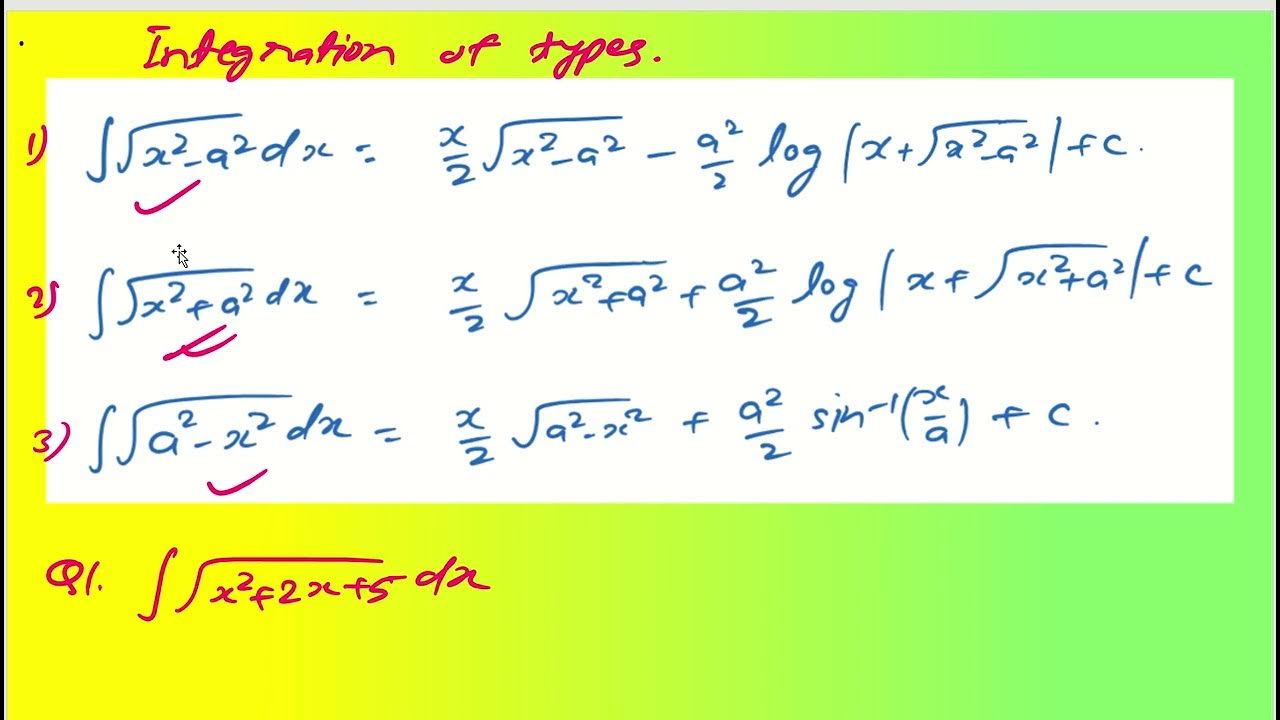 Integration of types.
1) ∫√x²-a² dx = x/2 √x²-a² - a²/2 log |x+√x²-a²|+c.
2) ∫√x²+a² dx = x/2 √x²+a² + a²/2 log |x+√x²+a²|+c
3) ∫√a²-x² dx = x/2 √a²-x² + a²/2 sin⁻¹(x/a) + c.
Q1. ∫√x²+2x+5 dx